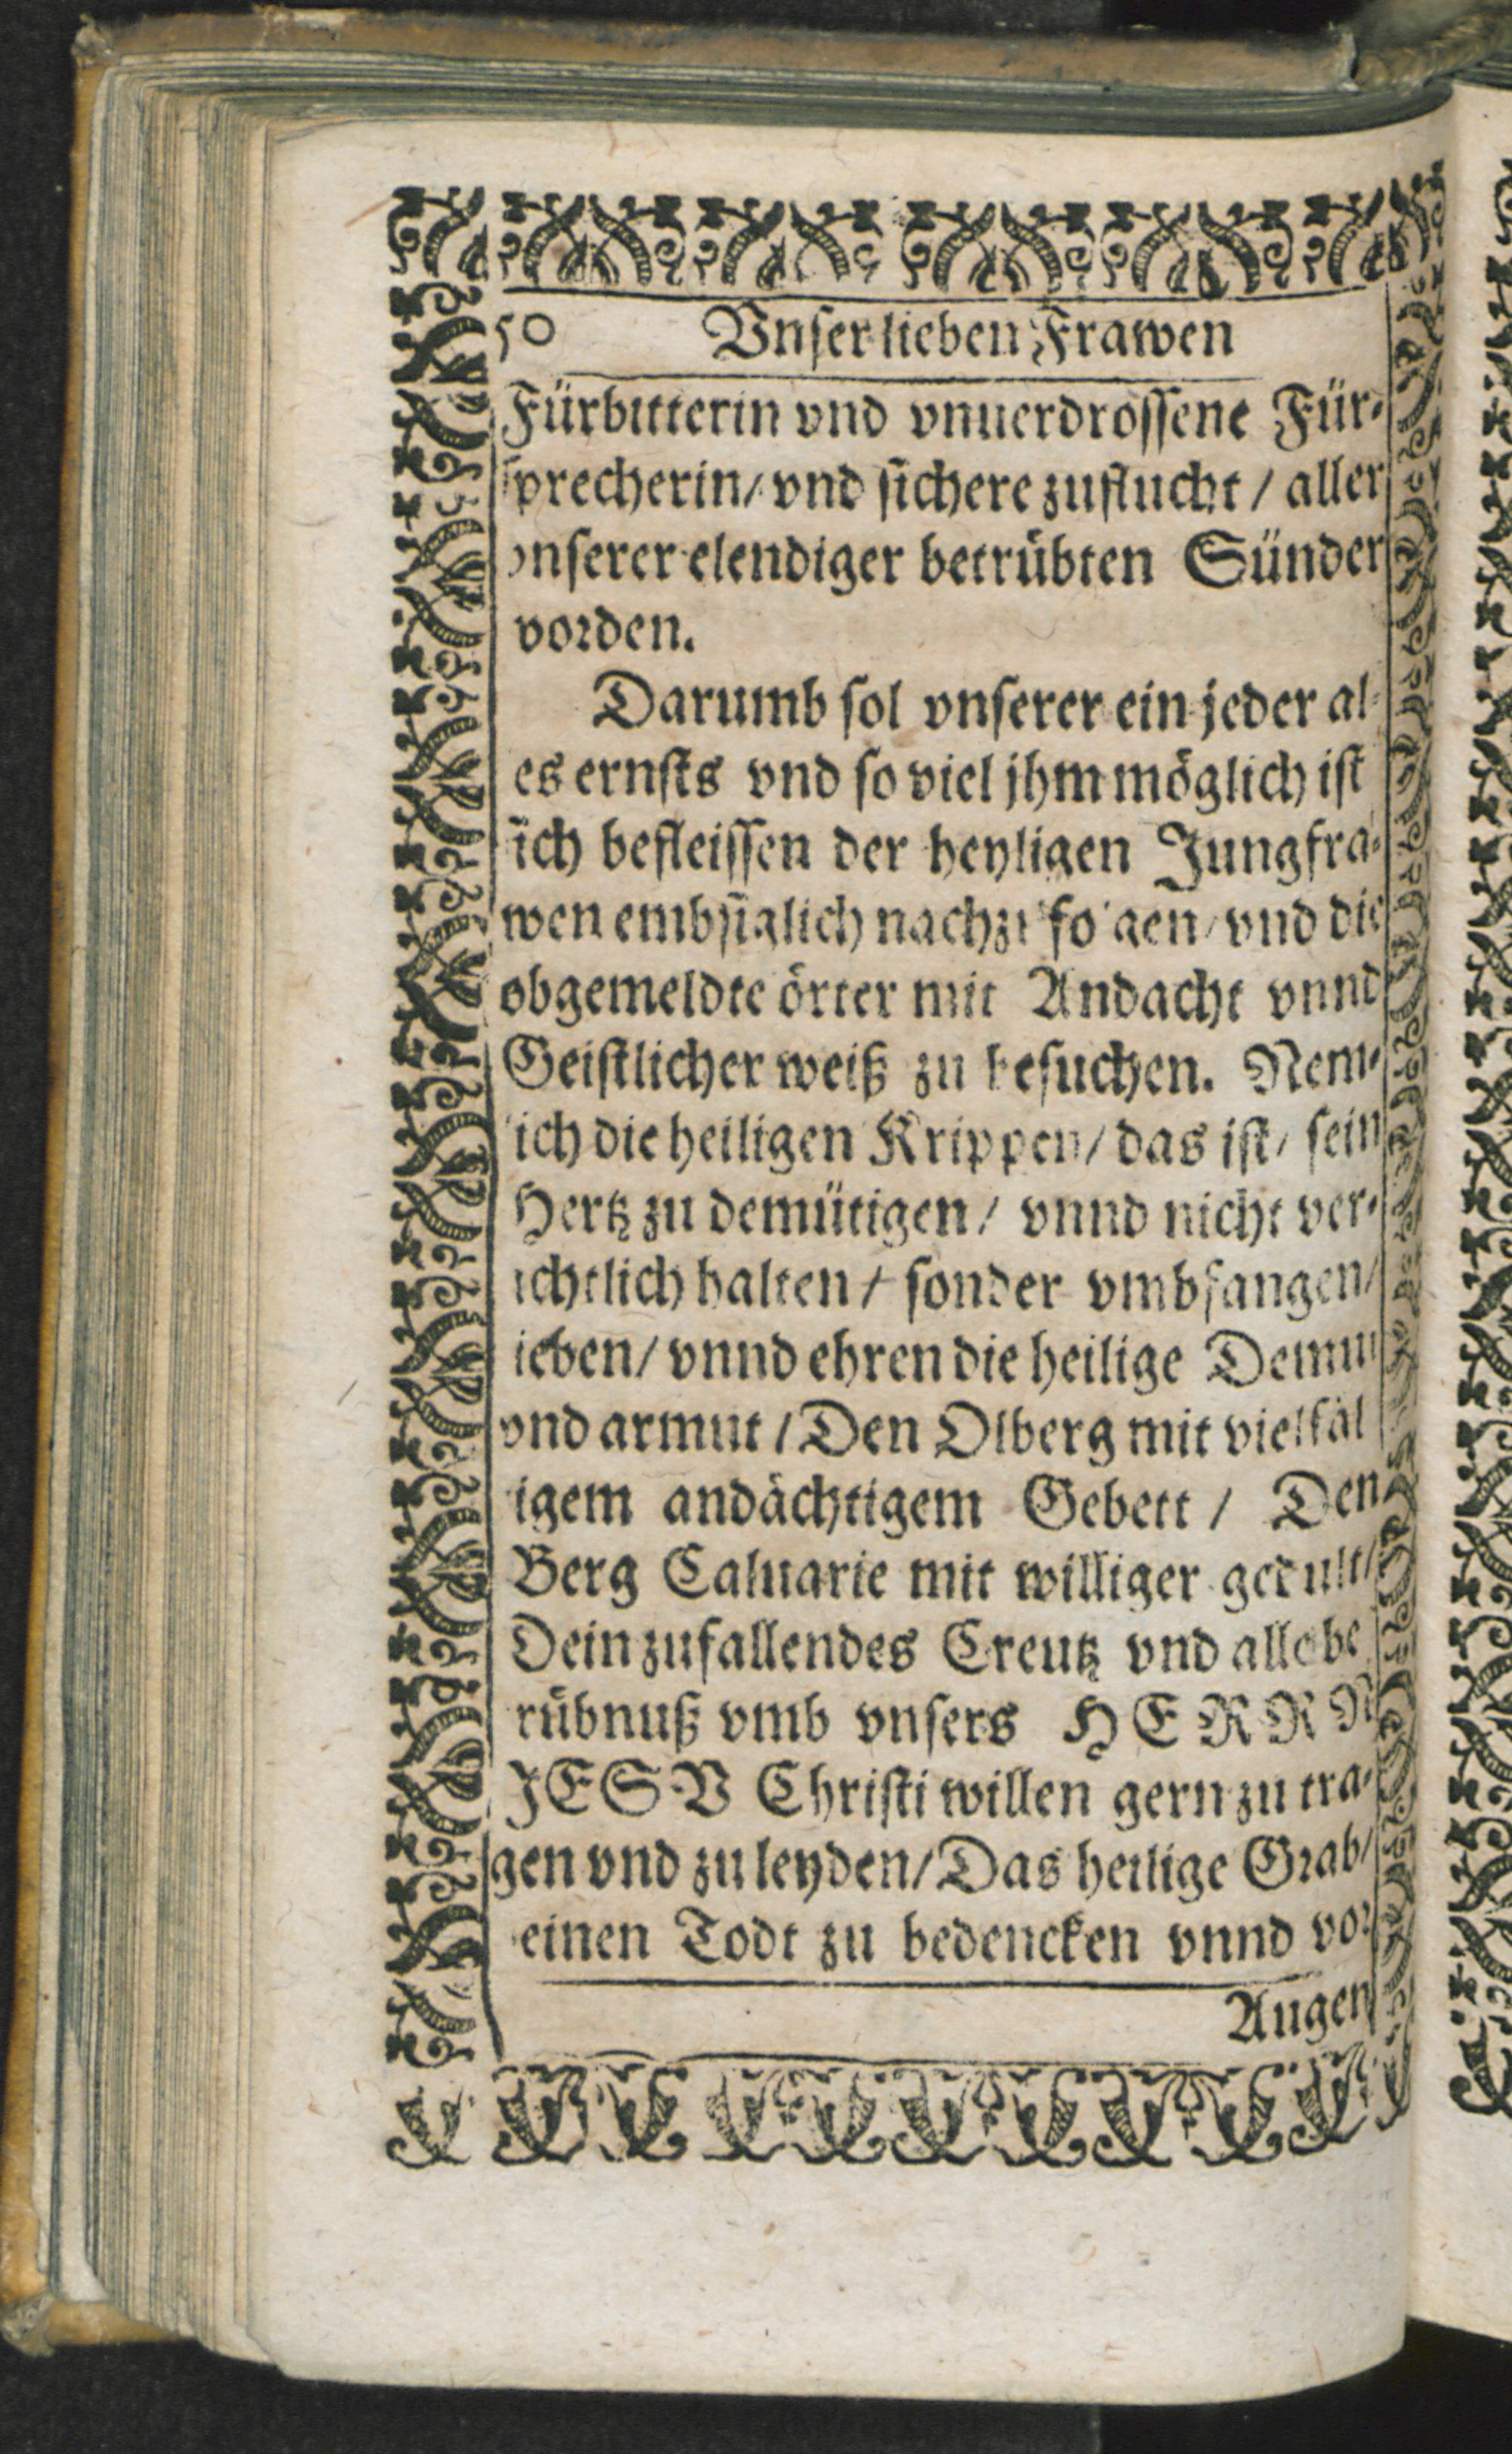 50 Vnser lieben Frawen
Fürbitterin vnd vnuerdrossene Für-
sprecherin/ vnd sichere zuflucht / aller
vnserer elendiger betrübten Sünder
vorden.
Darumb sol vnserer ein jeder al-
es ernsts vnd so viel jhm möglich ist
ich befleissen der heyligen Jungfra-
wen embsiglich nachzu fo gen/ vnd die
obgemeldte örter mit Andacht vnnd
Geistlicher weiß zu besuchen. Nem-
ich die heiligen Krippen/ das ist/ sein
Hertz zu demütigen/ vnnd nicht ver-
chtlich halten / sonder vmbfangen/
ieben/ vnnd ehren die heilige Demut
vnd armut / Den Olberg mit vielfäl
igem andächtigem Gebett / Den
Berg Caluarie mit williger gedult/
Dein zufallendes Creutz vnd alle be
rübnuß vmb vnsers HERRN
JESV Christi willen gern zu tra-
gen vnd zu leyden/ Das heilige Grab/
einen Todt zu bedencken vnnd vor
Augen